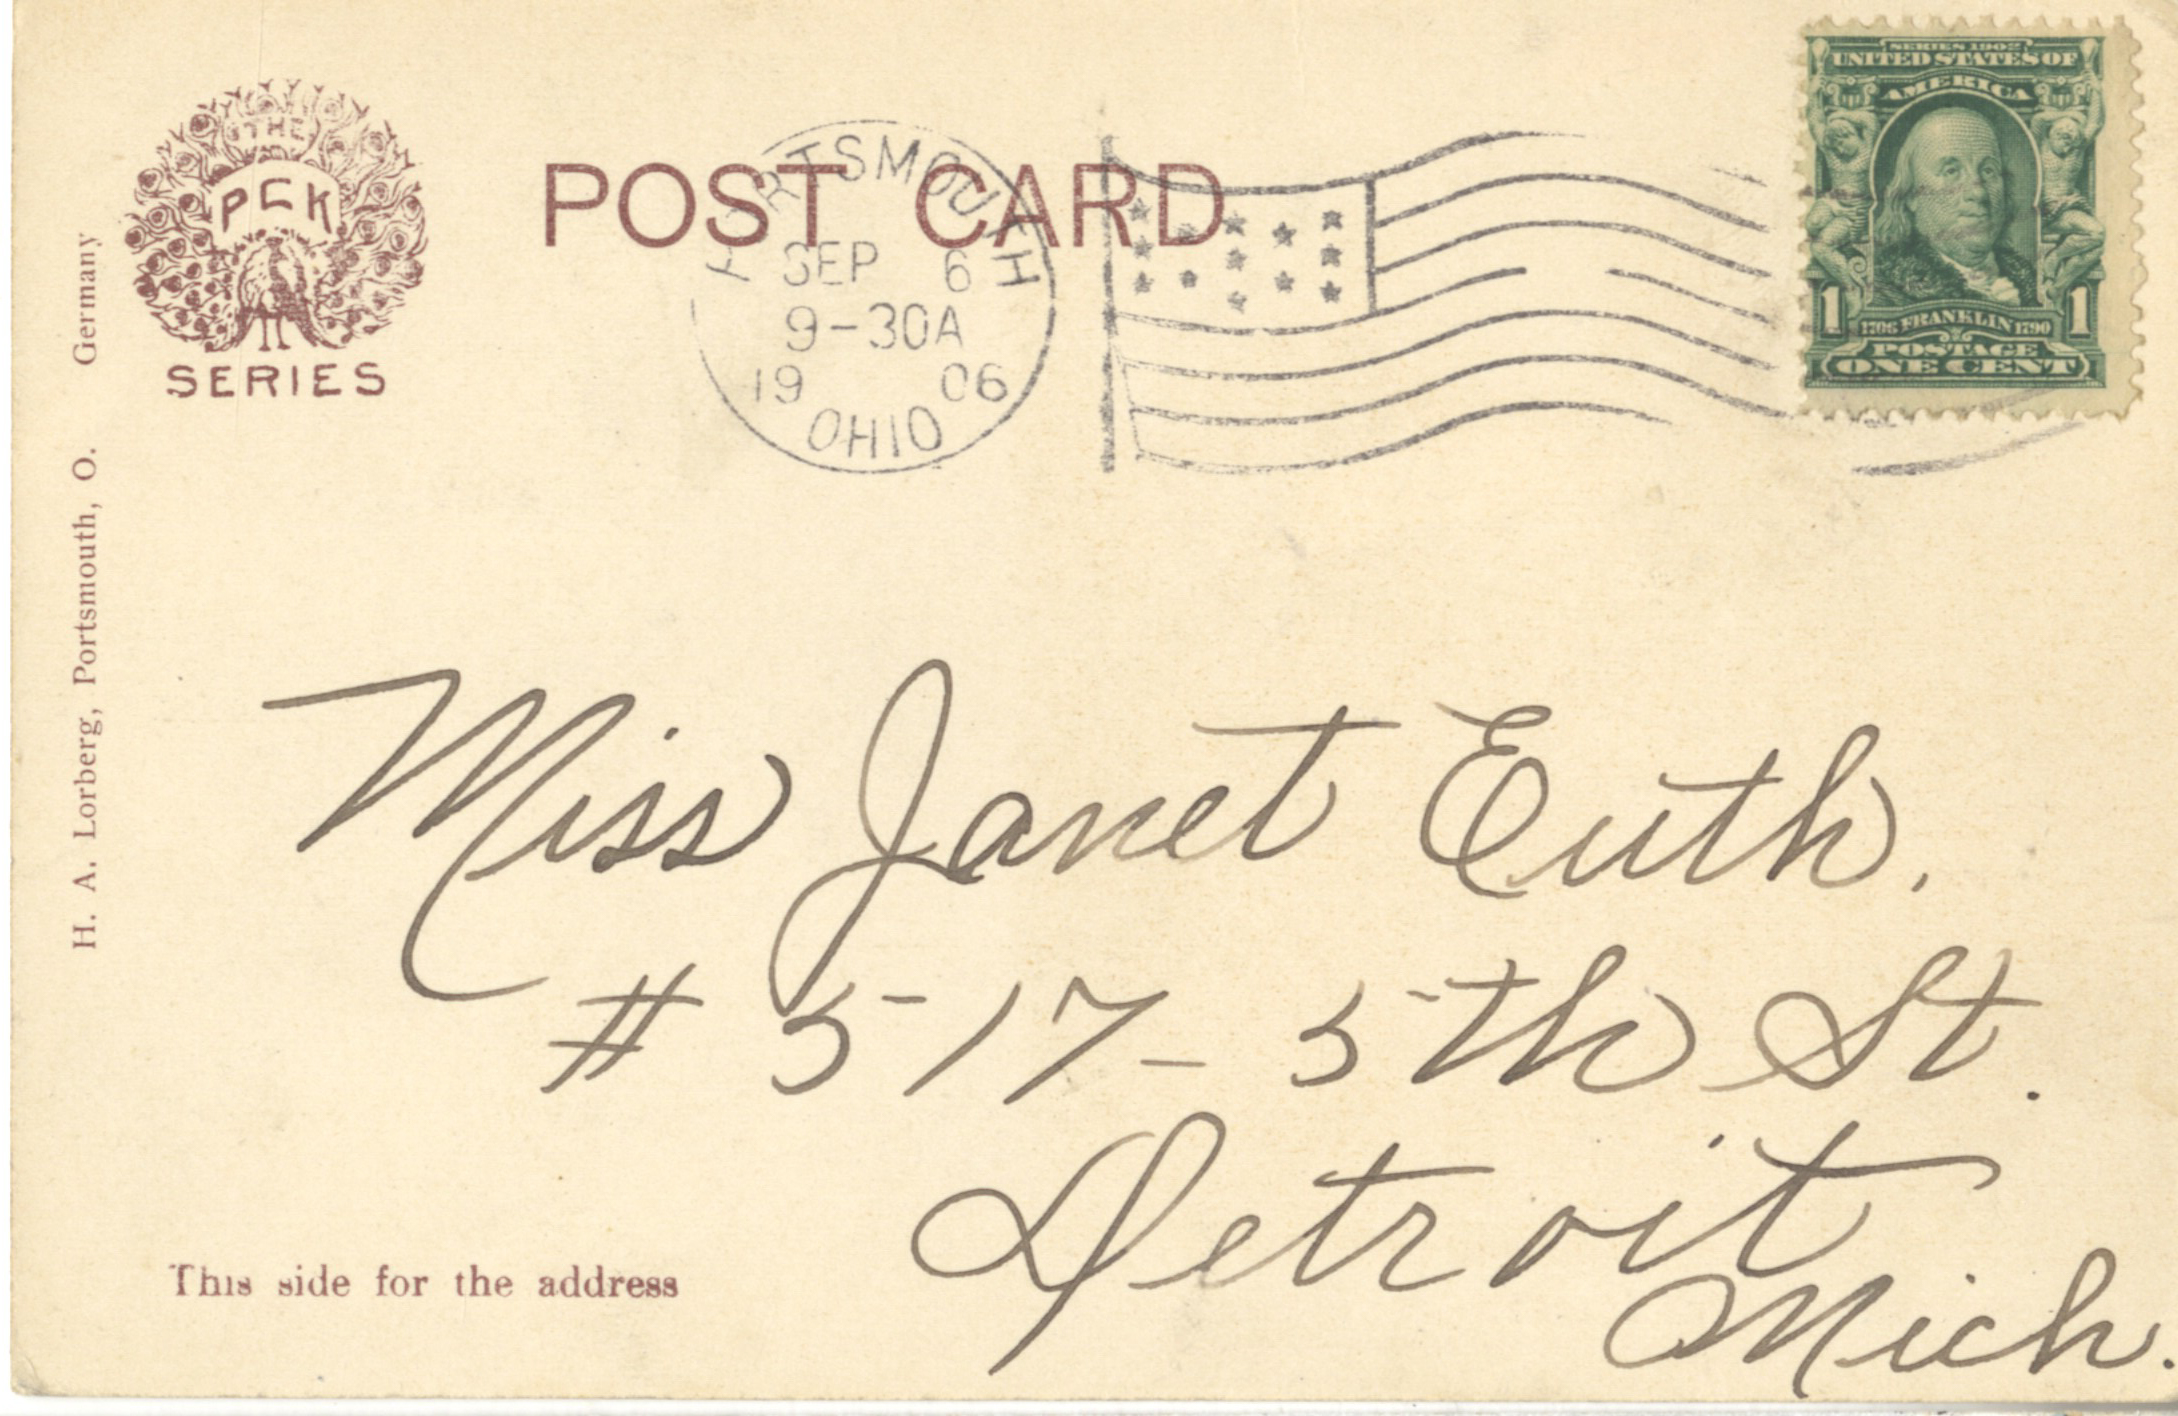 THE
PCK
SERIES
POST CARD
PORTSMOUTH
SEP 6
9-30A
1906
OHIO
SERIES 1902
UNITED STATES OF
AMERICA
1 1
1706 FRANKLIN 1790
POSTAGE
ONE CENT
H. A. Lorberg, Portsmouth, O. Germany
Miss Janet Euth.
# 517 - 5th St.
Detroit
Mich.
This side for the address